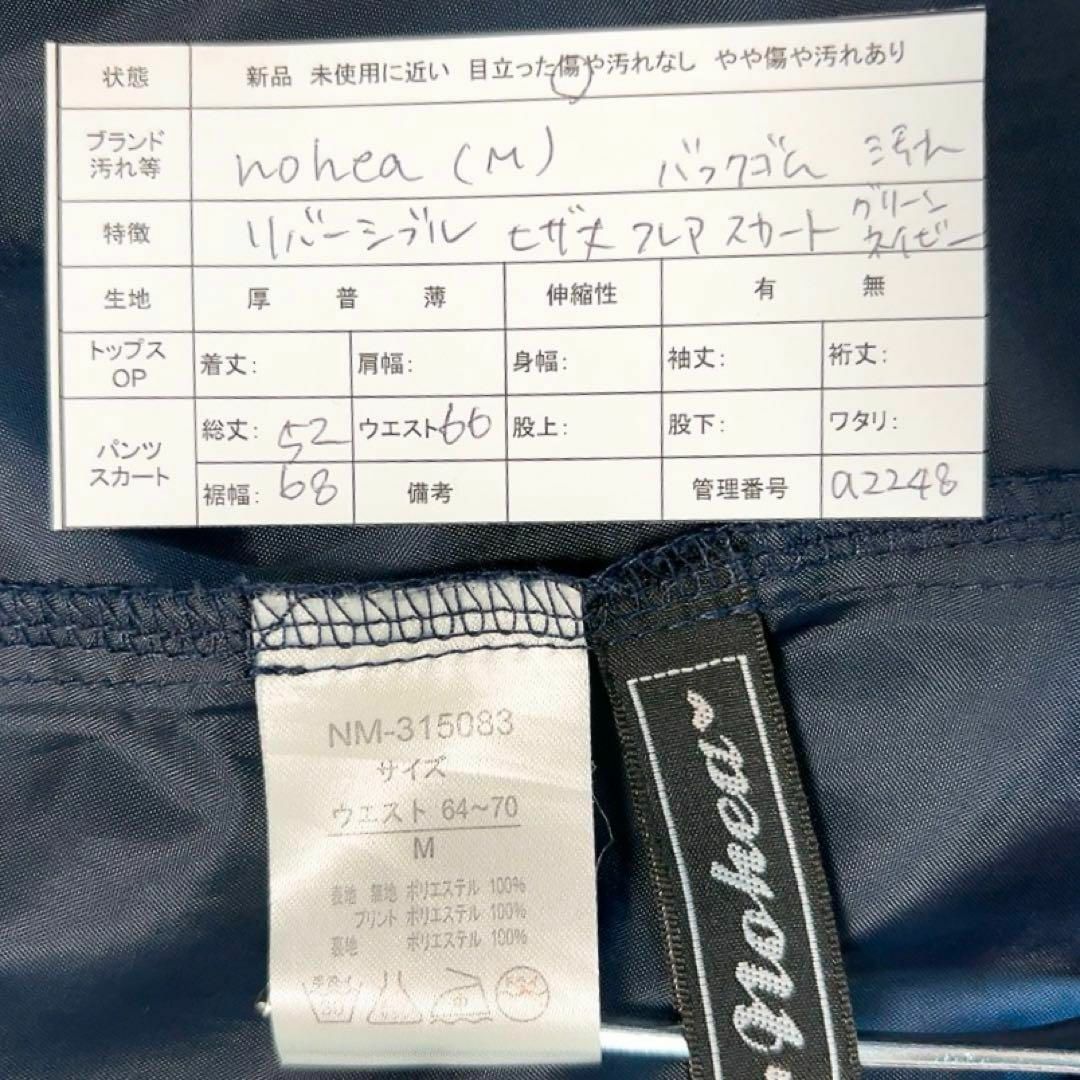 状態 新品 未使用に近い 目立った傷や汚れなし やや傷や汚れあり
ブランド
汚れ等 nohea (M) バックゴム 汚れ
特徴 リバーシブル ヒザ丈 フレア スカート グリーン
ネイビー
生地 厚 普 薄 伸縮性 有 無
トップス
OP 着丈: 肩幅: 身幅: 袖丈: 裄丈:
パンツ
スカート 総丈: 52 ウエスト 66 股上: 股下: ワタリ:
裾幅: 68 備考 管理番号 a2248
NM-315083
サイズ
ウエスト 64~70
M
表地 無地 ポリエステル 100%
プリント ポリエステル 100%
裏地 ポリエステル 100%
nohea